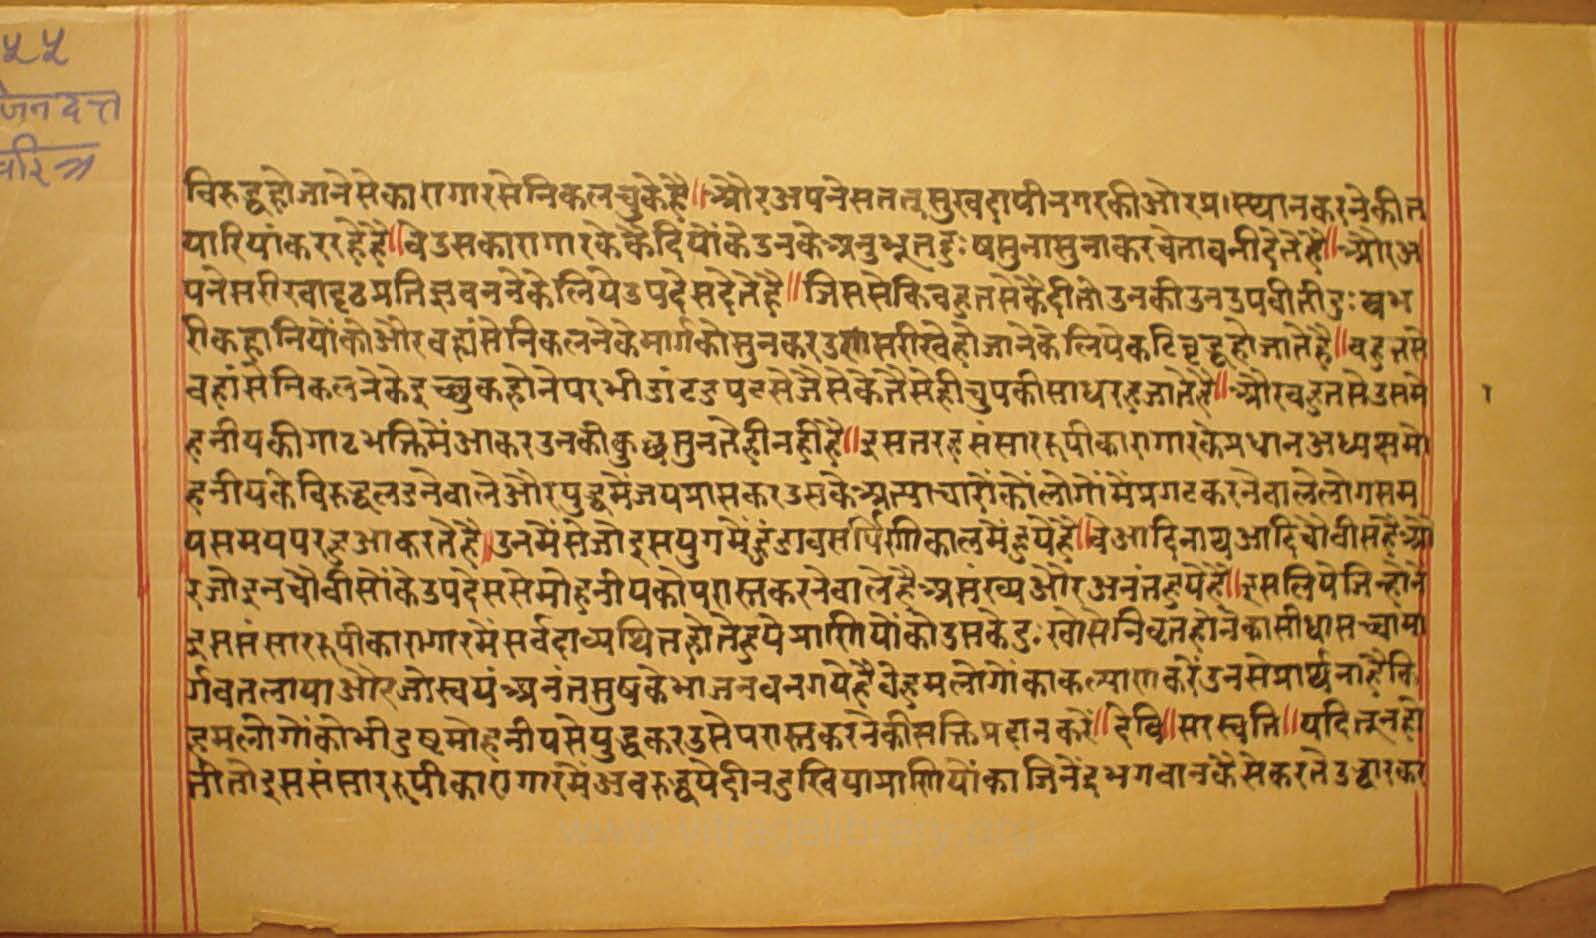 ५५
जिनदत्त
चरित्र
विरुद्धहोजानेसेकारागारसेनिकलचुकेहै॥औरअपनेसततसुखदायीनगरकीओरप्रास्थानकरनेकीत
यारियांकररहेहै॥वेउसकारागारकेकैदियोंकेउनकेअनुभूतदुःषसुनासुनाकरचेतावनीदेतेहै॥औरअ
पनेसरीखादृढप्रतिज्ञबननेकेलियेउपदेसदेतेहै॥जिससेकिबहुतसेकैदीतोउनकीउनउपवीतीदुःखभ
रीकहानियोंकोऔरवहांसेनिकलनेकेमार्गकोसुनकरउणसरीखेहोजानेकेलियेकटिबद्धहोजातेहै॥बहुतसे
वहांसेनिकलनेकेइच्छुकहोनेपरभीडांटडपटसेजैसेकेतैसेहीचुपकीसाधरहजातेहै॥औरबहुतसेउसमो
हनीयकीगाढभक्तिमेंआकरउनकीकुछसुनतेहीनहींहै॥इसतरहसंसाररूपीकारागारकेप्रधानअध्यक्षमो
हनीयकेविरुद्धलडनेवालेऔरयुद्धमेंजयप्राप्तकरउसकेअत्याचारोंकोलोगोंमेंप्रगटकरनेवालेलोगसम
यसमयपरहुआकरतेहै॥उनमेंसेजोइसयुगमेंहुंडावसर्पिणीकालमेंहुयेहै॥वेआदिनाथआदिचौवीसहैऔ
रजोइनचौवीसोंकेउपदेससेमोहनीयकोपरास्तकरनेवालेहैअसंख्यऔरअनंतहुयेहै॥इसलियेजिन्होंने
इससंसाररूपीकारागारमेंसर्वदाव्यथितहोतेहुयेप्राणियोंकोउसकेदुःखोसेनिवृतहोनेकासीधासच्चामा
र्गवतलायाऔरजोस्वयंअनंतसुषकेभाजनवनगयेहैवेहमलोगोंकाकल्याणकरेंउनसेप्रार्थनाहैकि
हमलोगोंकोभीदुष्टमोहनीयसेयुद्धकरउसेपरास्तकरनेकीसक्तिप्रदानकरें॥देवि॥सारस्वति॥यदितूनहो
तीतोइससंसाररूपीकारागारमेंअवरुद्धयेदीनदुखियाप्राणियोंकाजिनेंद्रभगवानकैसेकरतेउद्धारकर